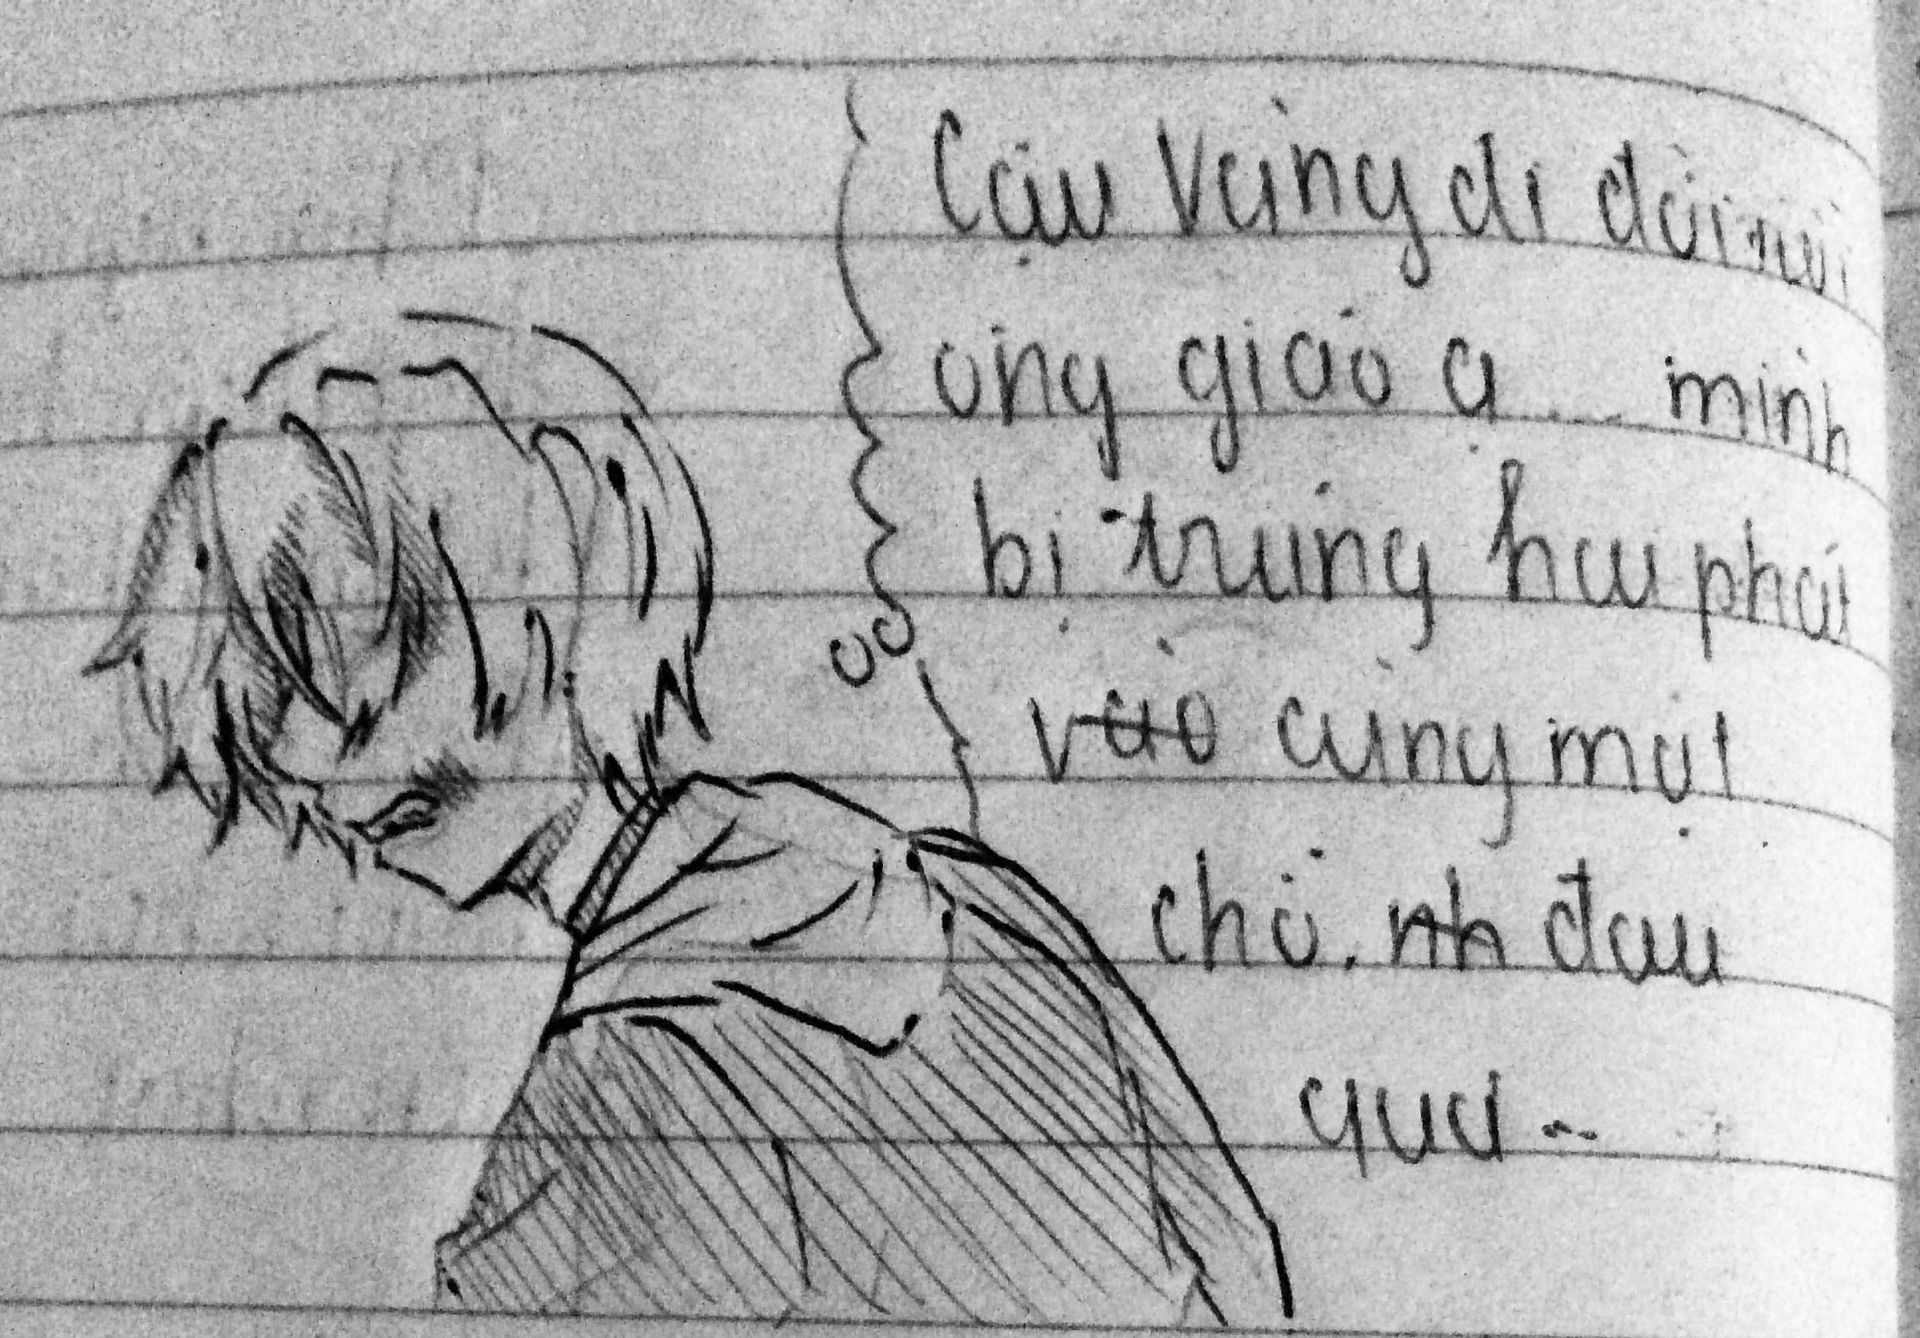 Cậu Vàng đi đời rồi
ông giáo ạ... mình
bị trúng hai phát
vào cùng một
chỗ. nh đau
quá...